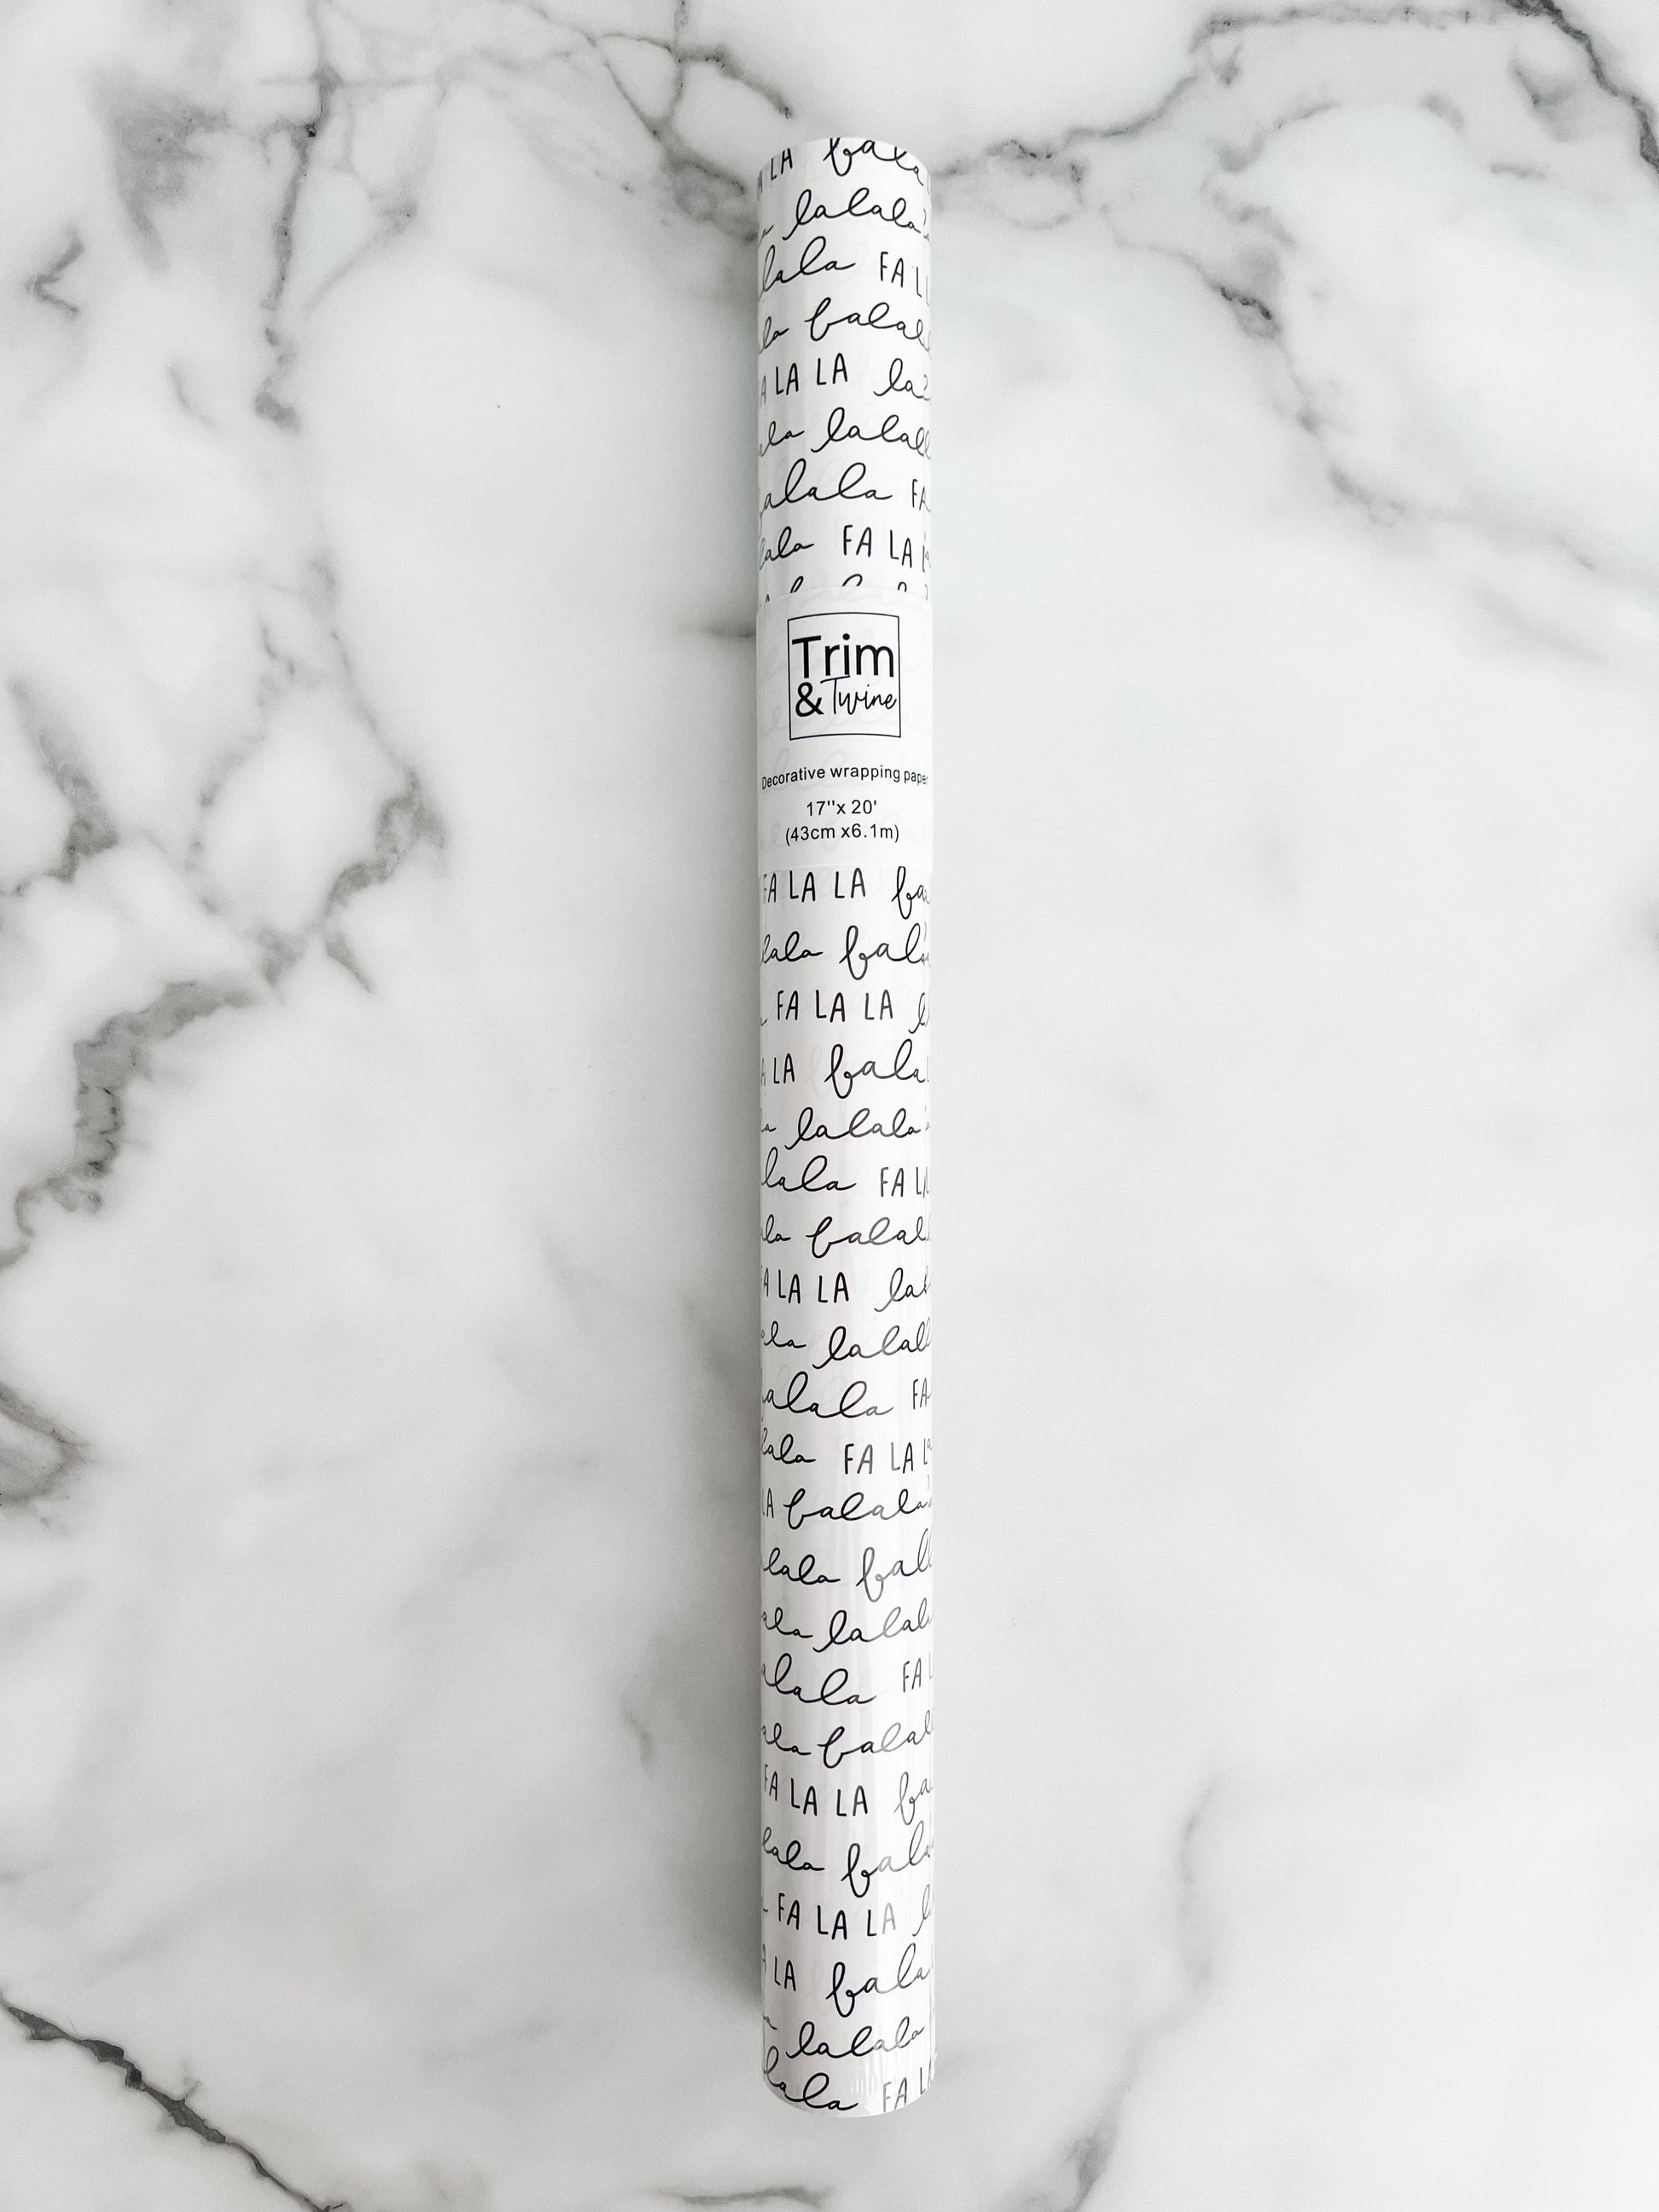 LA fala
lalala
lala FA
la falal
LA LA la
la lalal
alala FA
lala FA LA
Trim
& Twine
Decorative wrapping paper
17"x 20'
(43cm x6.1m)
FA LA LA fa
lala fal
FA LA LA
LA fala
lalala
lala FA
la falal
A LA LA la
la lalal
alala FA
lala FA LA
LA falala
lala fal
la lalal
alala FA
ala falal
FA LA LA fa
lala fala
FA LA LA
LA fala
lalala
lala FA